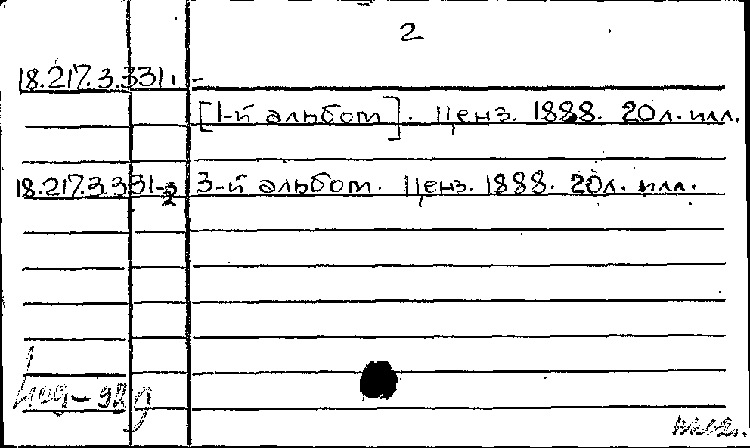 2
18.217.3.331 -
[1-й альбом]. Ценз. 1888. 20 л. илл.
18.217.3.331-2 3-й альбом. Ценз. 1888. 20 л. илл.